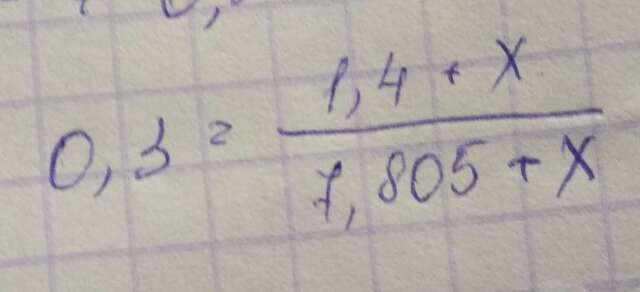 0,3 = (1,4 + x) / (7,805 + x)